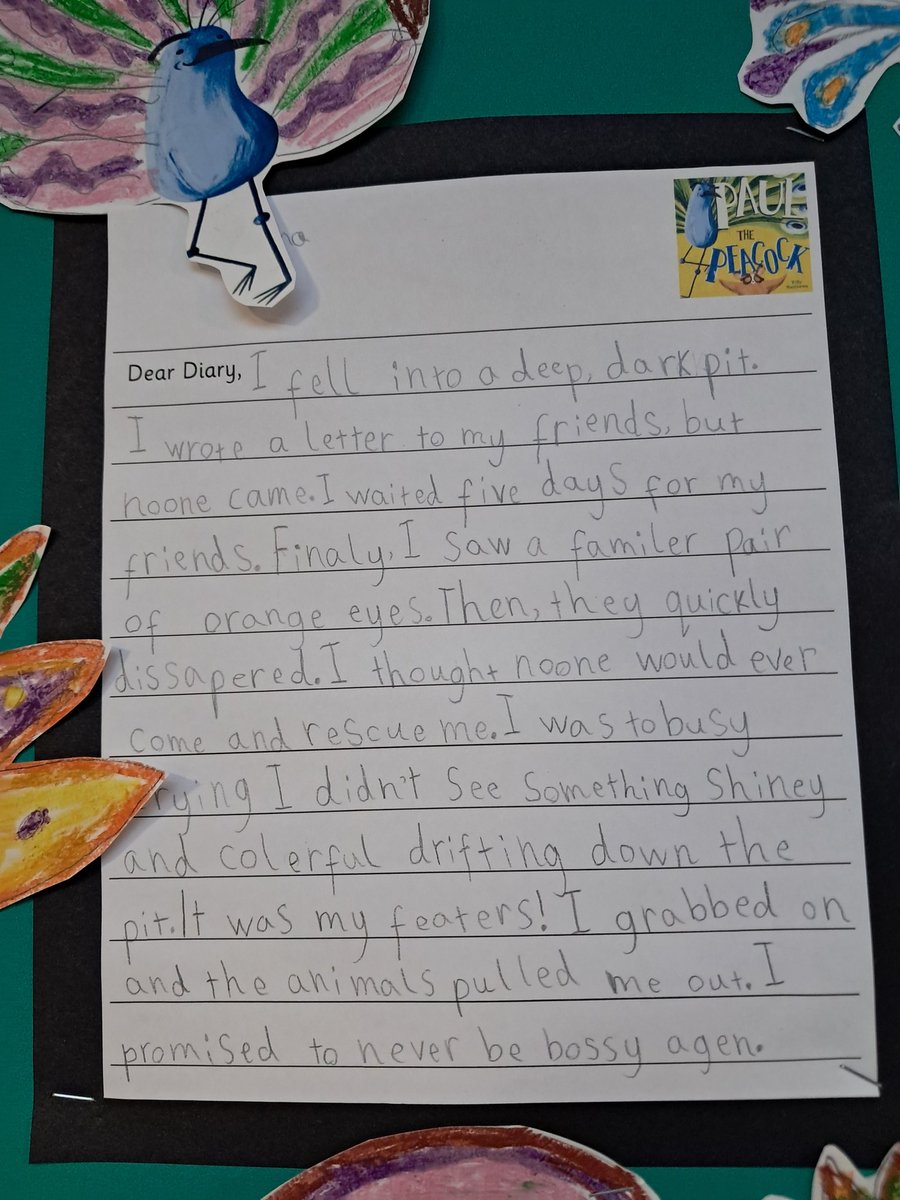 PAUL
THE
PEACOCK
Dear Diary, I fell into a deep, dark pit.
I wrote a letter to my friends, but
noone came. I waited five days for my
friends. Finaly, I saw a familer pair
of orange eyes. Then, they quickly
dissapered. I thought noone would ever
come and rescue me. I was to busy
rying I didn't see something shiney
and colerful drifting down the
pit. It was my featers! I grabbed on
and the animals pulled me out. I
promised to never be bossy agen.